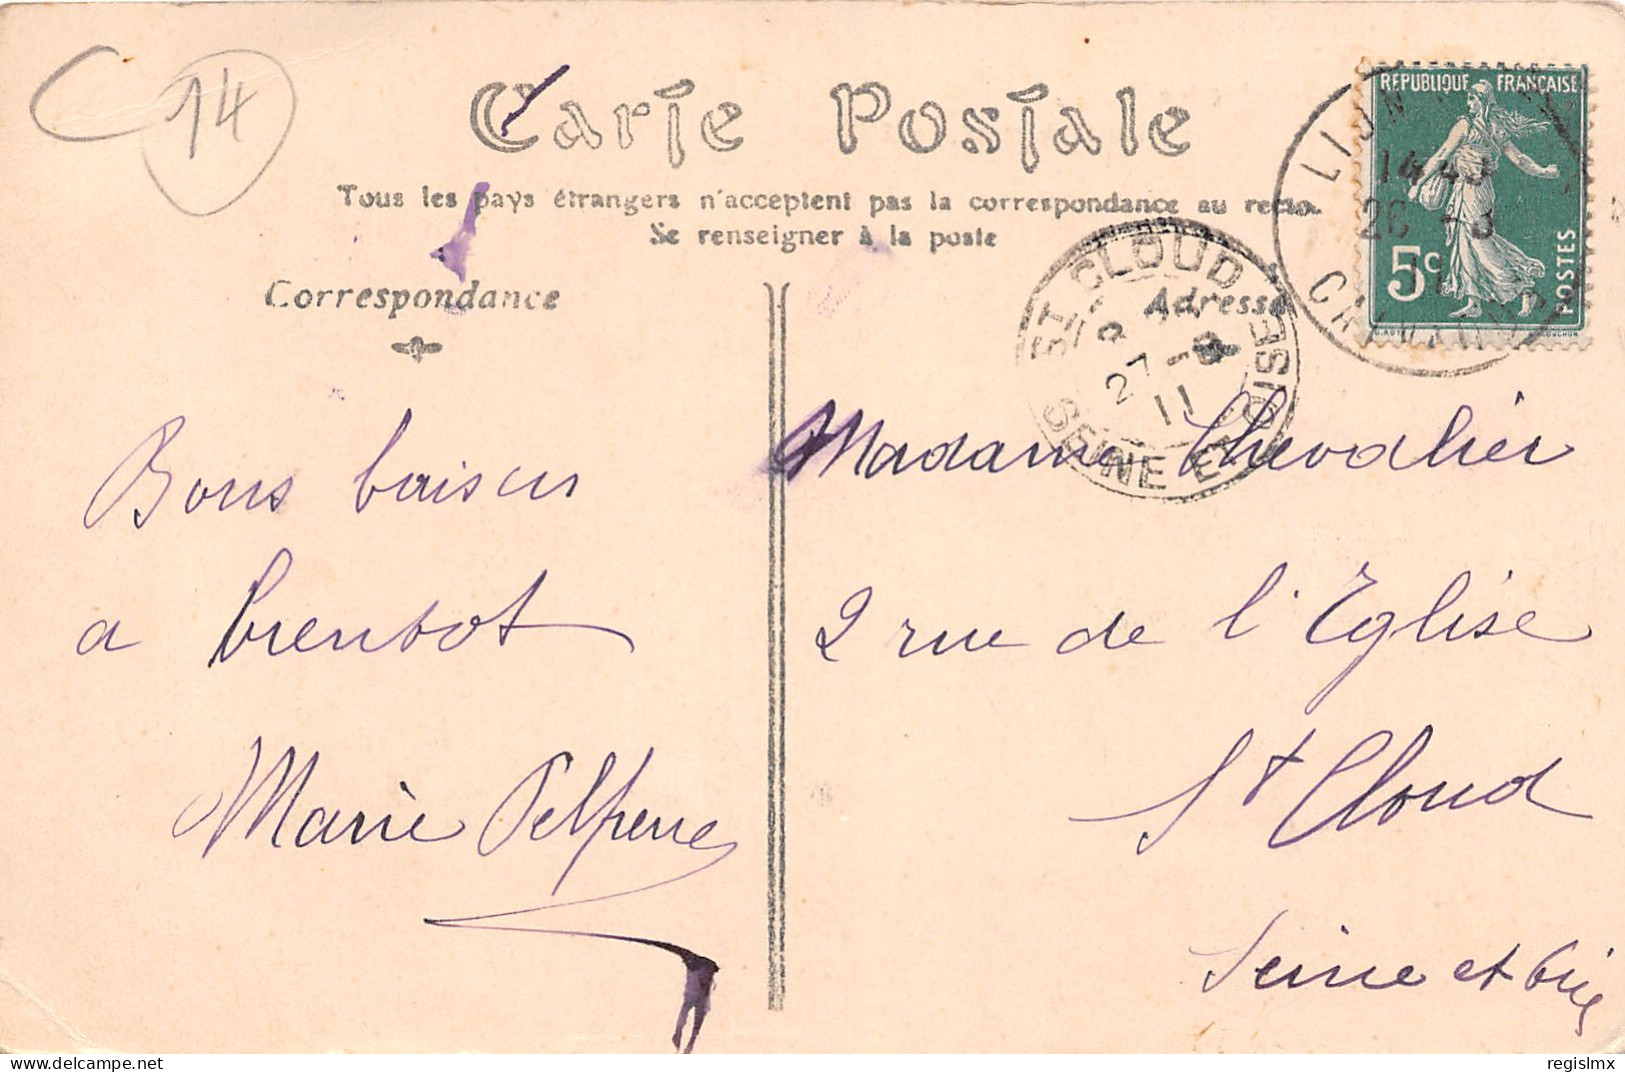 14
Carte Postale
Tous les pays étrangers n'acceptent pas la correspondance au recto.
Se renseigner à la poste
Correspondance
Adresse
REPUBLIQUE FRANÇAISE
5c
POSTES
14 45
26 -3
11
CALVADOS
ST CLOUD
27 -3
11
SEINE ET OISE
Bons baisers
a bientot
Marie
Madame Chevalier
2 rue de l'Eglise
St Cloud
Seine et Oise
regislmx